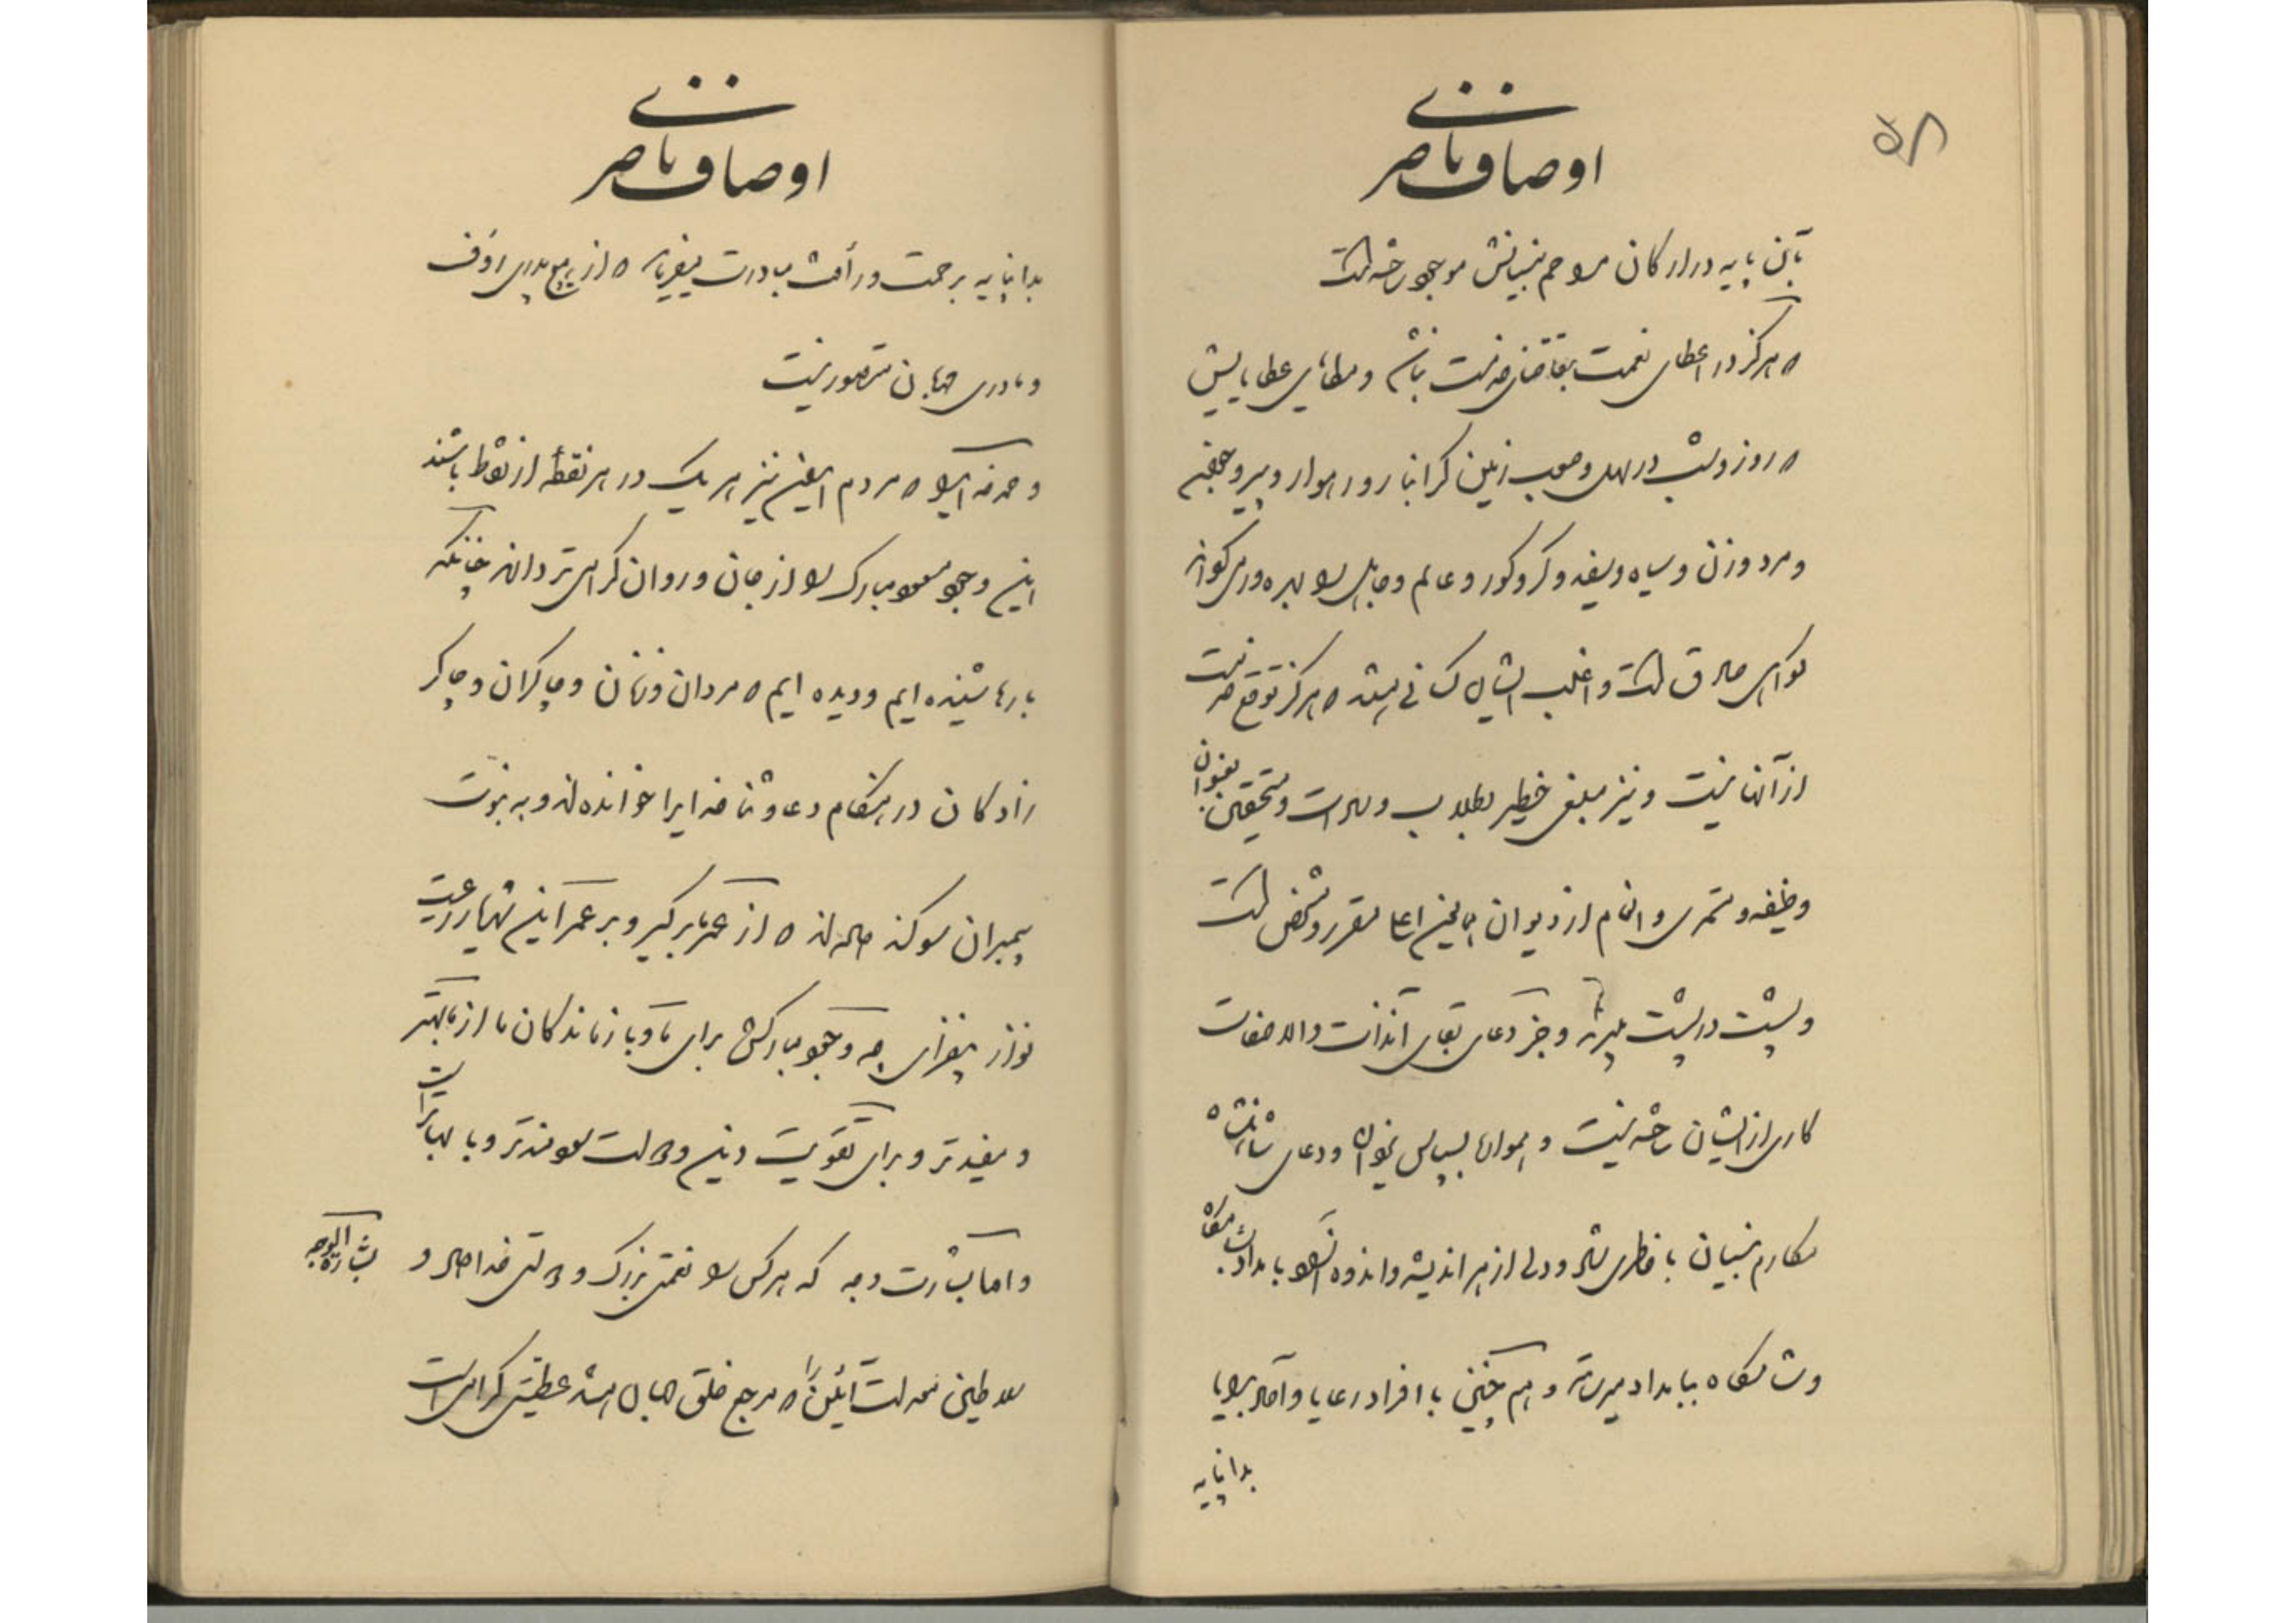 ۵۸
اوصاف ناصری
بآن پایه در ارکان مراحم بنیانش موجود است
که هرگز در اعطای نعمت بتقاضای خدمت نباشد و مطایای عطایایش
که روز و شب در سهل و صعب زمین گرانبار و رهوار و پیر و
و مرد و زن و سیاه و سفید و کر و کور و عالم و جاهل را بهره‌ور می گواه
صادق است و اغلب ایشان کسانی هستند که هرگز توقع خدمت
از آنها نیست و نیز مبلغی خطیر بطلاب و سادات و مستحقین بعنوان
وظیفه و مستمری و انعام از دیوان همایون اعلی مقرر و مشخص است
و پشت در پشت میبرند و جز دعای بقای آنذات والا صفات
کاری از ایشان خواسته نیست و همواره بسپاس بیقیاس و دعای شاهنشاه
مکارم بنیان با خاطری شاد و دلی از هر اندیشه و اندوه آسوده بامدادشان بشامگاه
و شامگاه ببامداد میرسد و هم چنین با افراد رعایا و آحاد برایا
بدانپایه
اوصاف ناصری
بدانپایه برحمت و رأفت مبادرت میفرمایند که از هیچ پدری رؤف
و مادری مهربان متصور نیست
و مردم ایران نیز هر یک در هر نقطه از نقاط باشند
این وجود مسعود مبارک را از جان و روان گرامی‌تر دانند چنانکه
بارها شنیده ایم و دیده ایم که مردان و زنان و چاکران و چاکر
زادگان در هنگام دعا و ثنا خدایرا خوانده‌اند و به نبوت
پیمبران سوگند داده‌اند که از عمر ما برگیر و بر عمر این شهریار رعیت
نواز بیفزای چه وجود مبارکش برای ما و بازماندگان ما از ما بهتر
و مفیدتر و برای تقویت دین و دولت سودمندتر و با بهاتر است
و اما بشارت دهم که هر کس را نعمتی بزرگ و دولتی خداداد و
سلاطین معدلت آئین را که مرجع خلق جهان باشند عطیتی گرامی است